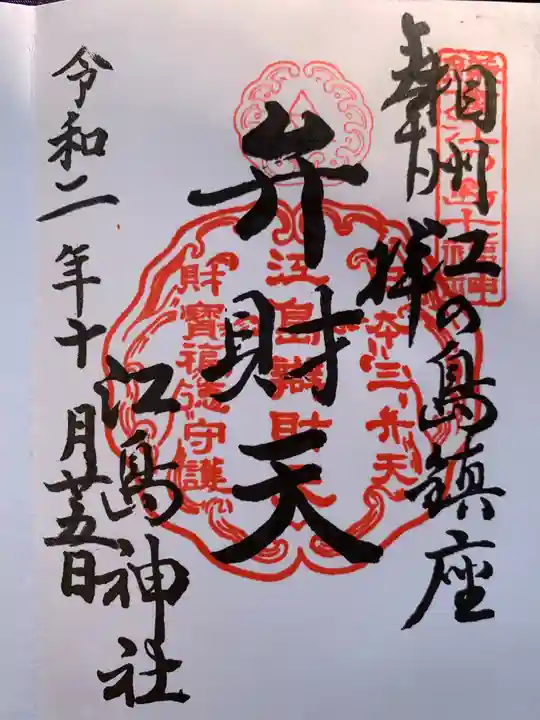 相州江の島鎮座
奉拝
弁財天
江島神社
令和二年十月廿五日
日本三弁天
江島辨財天
財寶福德守護